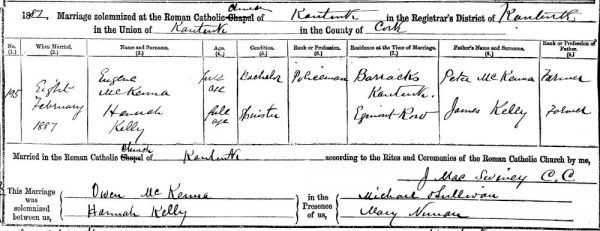 1887. Marriage solemnized at the Roman Catholic Chapel Church of Kanturk in the Registrar's District of Kanturk
in the Union of Kanturk in the County of Cork
No. (1.) When Married. (2.) Name and Surname. (3.) Age. (4.) Condition. (5.) Rank or Profession. (6.) Residence at the Time of Marriage. (7.) Father's Name and Surname. (8.) Rank or Profession of Father. (9.)
195 Eight February 1887
Eugene McKenna full age Bachelor Policeman Barracks Kanturk. Peter McKenna Farmer
Hannah Kelly full age Spinster Egmont Row James Kelly Farmer
Married in the Roman Catholic Chapel Church of Kanturk according to the Rites and Ceremonies of the Roman Catholic Church by me,
J Mac Swiney C.C
This Marriage was solemnized between us,
Owen McKenna
Hannah Kelly
in the Presence of us,
Michael O'Sullivan
Mary Noonan